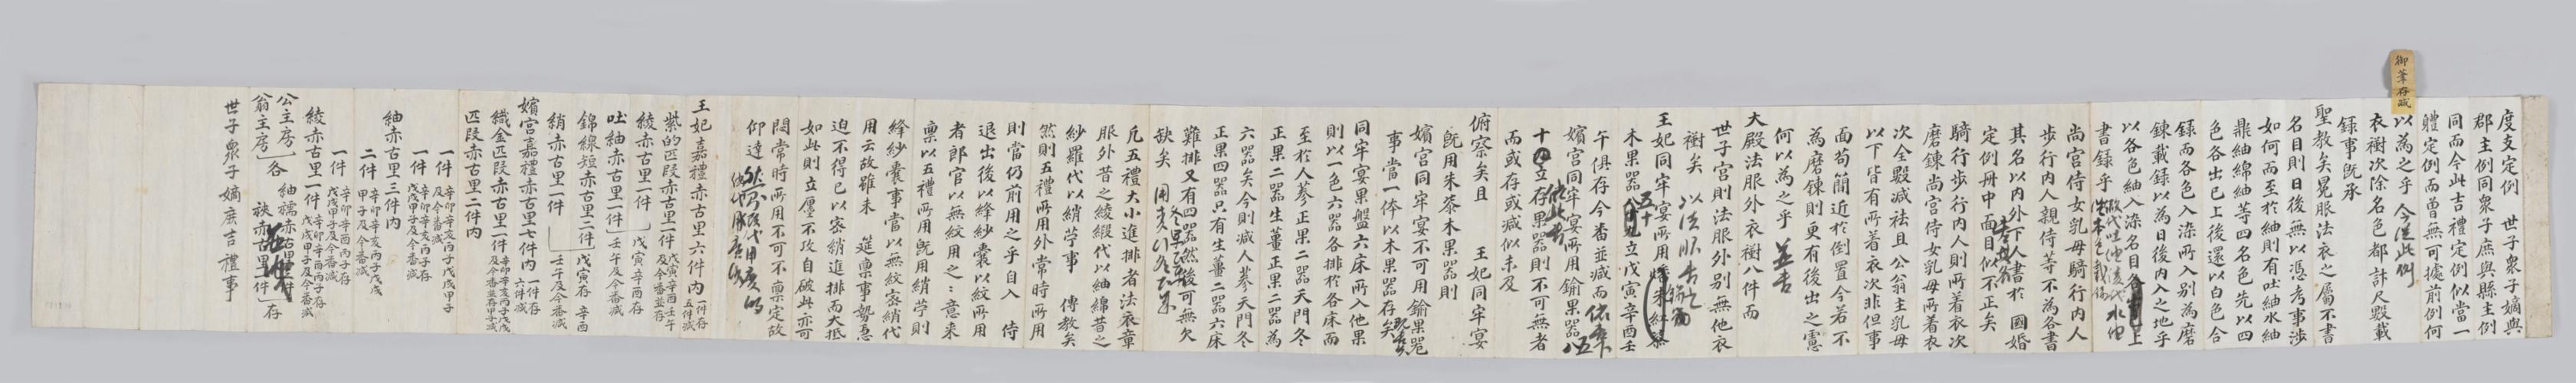 御筆存減
度支定例 世子衆子嫡與
郡主例同衆子庶與縣主例
同而今此吉禮定例似當一
體定例而曾無可據前例何
以為之乎 今從此例
衣襨次除名色都計尺數載
錄事旣承
聖教矣冕服法衣之屬不書
名目則日後無以憑考事涉
如何而至於紬則有吐紬水紬
鼎紬綿紬等四名色先以四
色各出已上後還以白色合
錄而各色入染所入別為磨
鍊載錄以為日後內入之地乎
以各色紬入染名目各上
書錄乎
尚宮侍女乳母騎行內人
步行內人親侍等不為各書
其名以內外下人書於 國婚
定例冊中面目似不正矣
騎行步行內人則所着衣次
磨鍊尚宮侍女乳母所着衣
次全數減祛且公翁主乳母
以下皆有所着衣次非但事
面苟簡近於倒置今若不
為磨鍊則更有後出之慮
何以為之乎 並書
大殿法服外衣襨八件而
世子宮則法服外別無他衣
襨矣
王妃同牢宴所用
木果器立戊寅辛酉壬
午俱存今番並減而
嬪宮同牢宴所用鍮果器
十立存果器則不可無者
而或存或減似未及
俯察矣且 王妃同牢宴
旣用朱漆木果器則
嬪宮同牢宴不可用鍮果器
事當一体以木果器存矣
同牢宴果盤六床所入他果
則以一色六器各排於各床而
至於人蔘正果二器天門冬
正果二器生薑正果二器為
六器矣今則減人蔘天門冬
正果四器只有生薑二器六床
難排又有四器然後可無欠
缺矣
凡五禮大小進排者法衣章
服外昔之綾緞代以紬綿昔之
紗羅代以綃苧事 傳教矣
然則五禮所用外常時所用
則當仍前用之乎自入 侍
退出後以絳紗囊以紋所用
者郎官以無紋用之之意來
稟以五禮所用旣用綃苧則
絳紗囊事當以無紋密綃代
用云故雖未 筵稟事勢急
迫不得已以密綃進排而大抵
如此則立廛不攻自破此亦可
悶常時所用不可不稟定故
仰達
王妃嘉禮赤古里六件內 一件存五件減
紫的匹段赤古里一件 戊寅辛酉壬午及今番並存
綾赤古里一件 戊寅辛酉存
吐紬赤古里一件 壬午及今番減
錦線短赤古里二件 戊寅存 辛酉
綃赤古里一件 壬午及今番減
嬪宮嘉禮赤古里七件內 一件存六件減
織金匹段赤古里一件 辛卯辛亥丙子戊戌及今番並存甲子減
匹段赤古里二件內
一件 辛卯辛亥丙子戊戌甲子及今番減
一件 辛卯辛亥丙子存戊戌甲子及今番減
紬赤古里三件內
二件 辛卯辛亥丙子戊戌甲子及今番減
一件 辛卯辛酉丙子存戊戌甲子及今番減
綾赤古里一件 辛卯辛酉丙子存戊戌甲子及今番減
公主房 各 紬襦赤古里一件 存
翁主房 裌赤古里一件
世子衆子嫡庶吉禮事